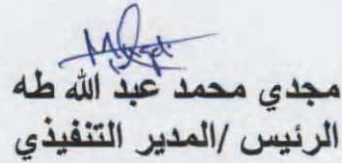 مجدي محمد عبد الله طه
الرئيس /المدير التنفيذي